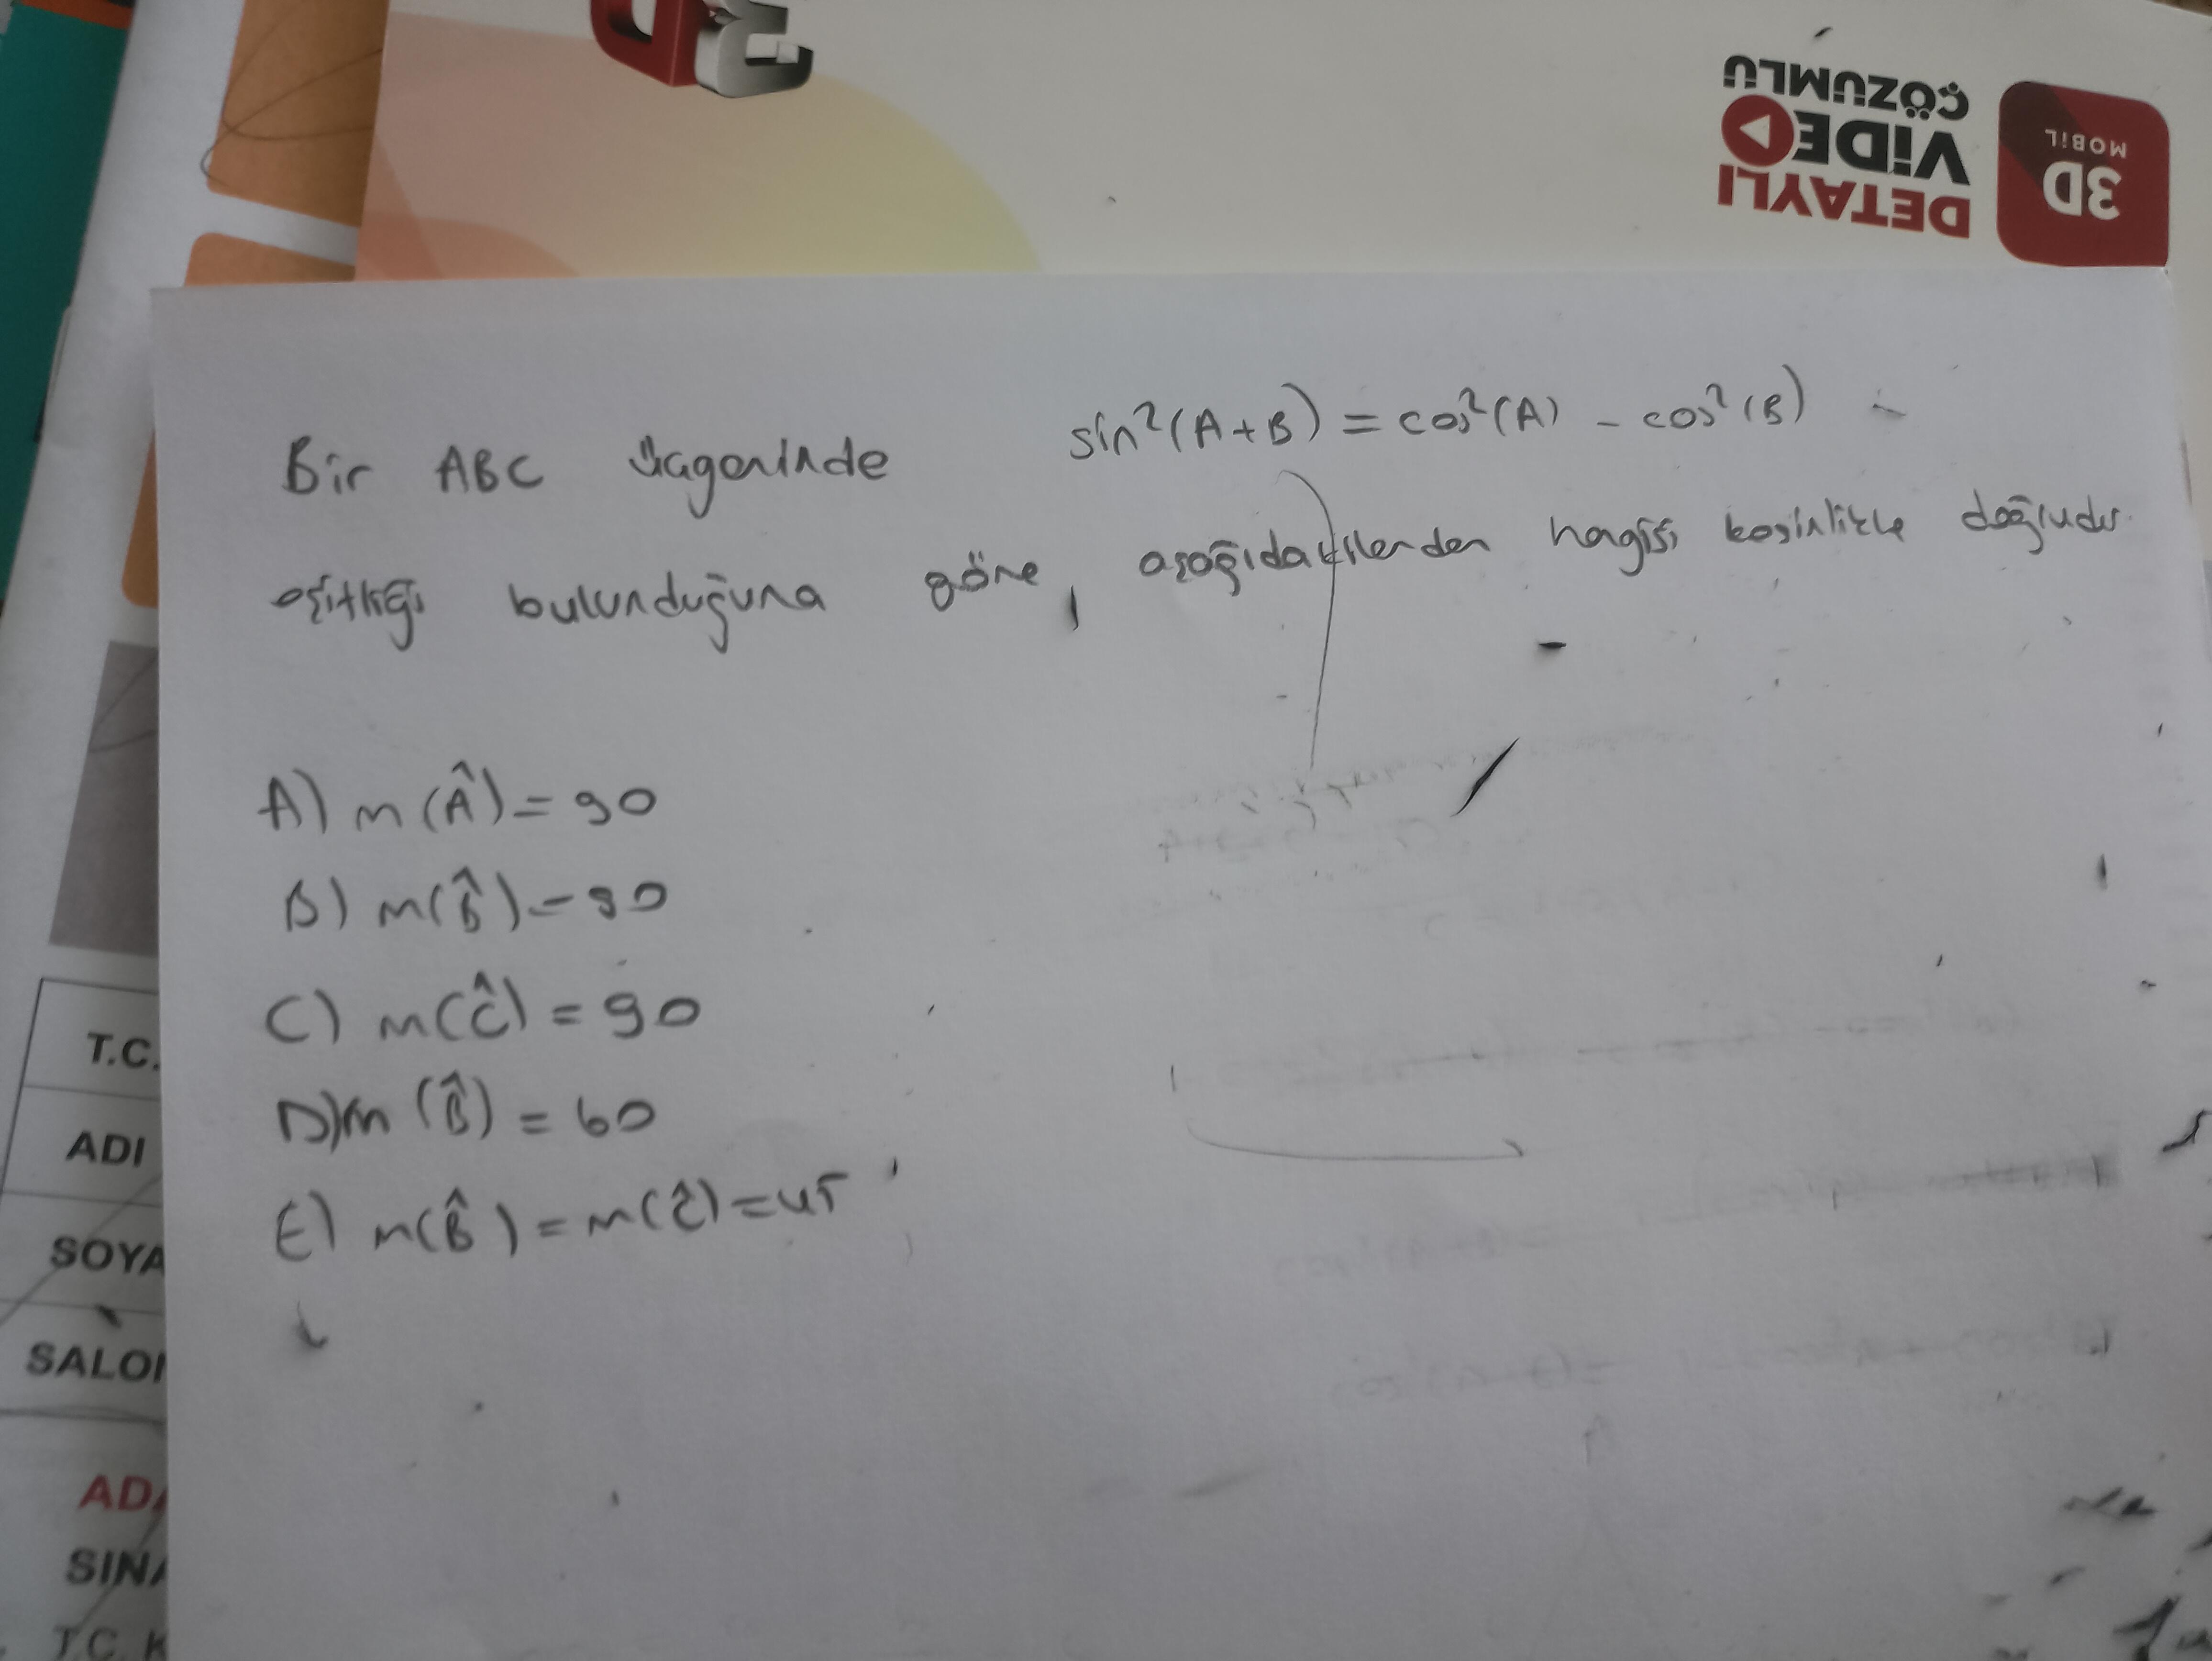 3D
DETAYLI
VİDEO
ÇÖZÜMLÜ
3D
MOBİL
Bir ABC üçgeninde sin²(A+B) = cos²(A) - cos²(B)
eşitliği bulunduğuna göre, aşağıdakilerden hangisi kesinlikle doğrudur
A) m(Â) = 90
B) m(B̂) = 90
C) m(Ĉ) = 90
D) m(B̂) = 60
E) m(B̂) = m(Ĉ) = 45
T.C.
ADI
SOYA
SALON
ADA
SINA
T.C. K